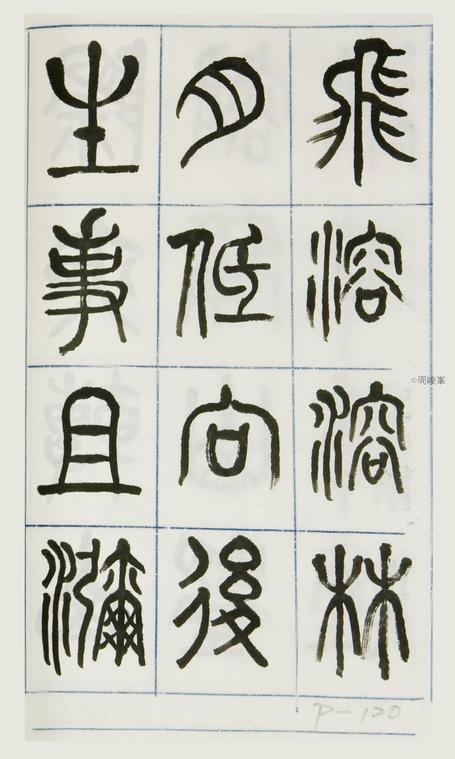 飛溶溶林
月低向後
生事且瀰
©周峻峯
P-120